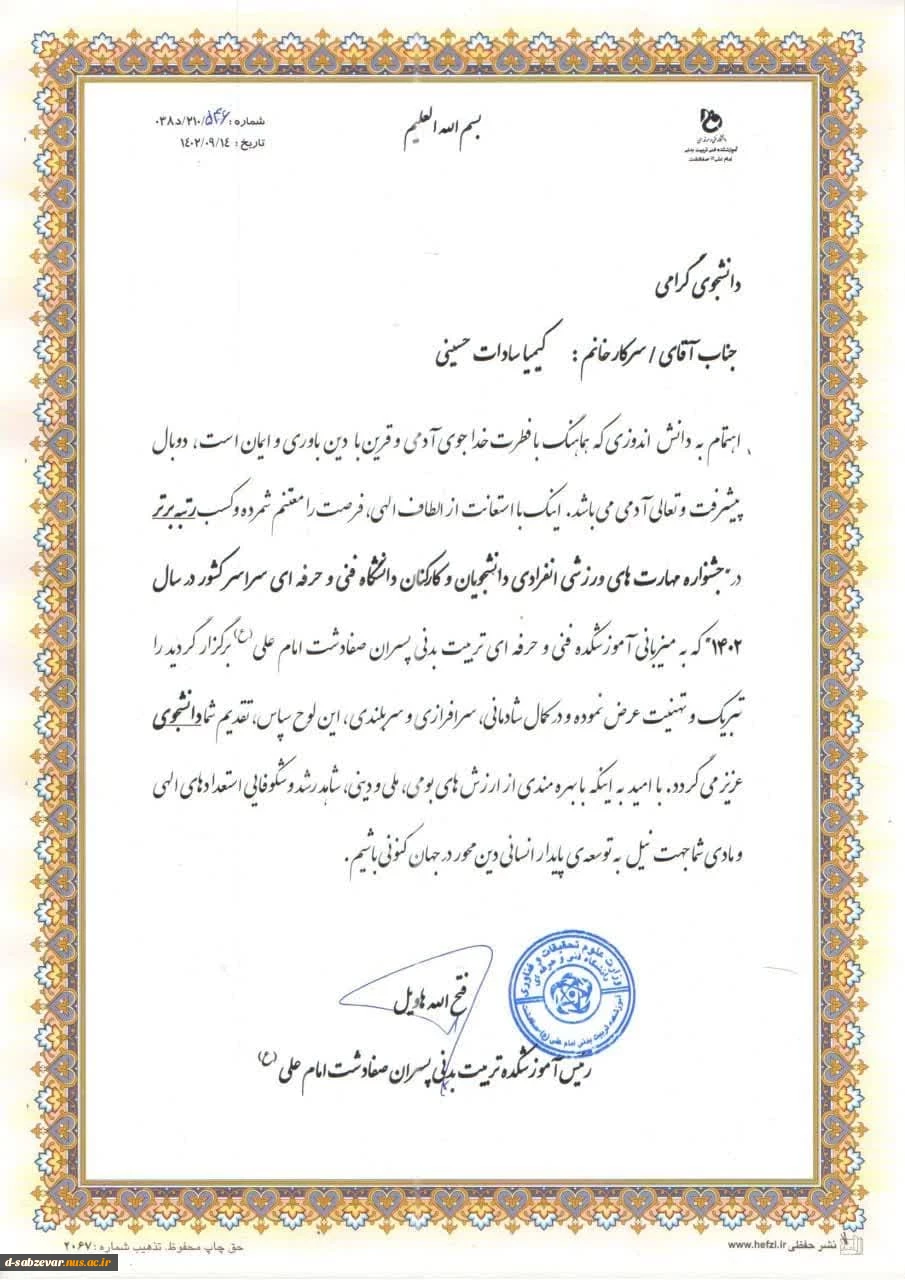 بسم الله العلیم
شماره: ۵۴۶/۲۱۰/د۰۳۸
تاریخ: ۱۴۰۲/۰۹/۱۴
آموزشکده فنی تربیت بدنی
امام علی (ع) صفادشت
دانشجوی گرامی
جناب آقای / سرکار خانم: کیمیا سادات حسینی
اهتمام به دانش اندوزی که هماهنگ با فطرت خداجوی آدمی و قرین با دین باوری و ایمان است، دو بال
پیشرفت و تعالی آدمی می باشد. اینک با استعانت از الطاف الهی، فرصت را مغتنم شمرده و کسب رتبه برتر
در "جشنواره مهارت های ورزشی انفرادی دانشجویان و کارکنان دانشگاه فنی و حرفه ای سراسر کشور در سال
۱۴۰۲" که به میزبانی آموزشکده فنی و حرفه ای تربیت بدنی پسران صفادشت امام علی (ع) برگزار گردید را
تبریک و تهنیت عرض نموده و در کمال شادمانی، سرافرازی و سربلندی، این لوح سپاس، تقدیم شما دانشجوی
عزیز می گردد. با امید به اینکه با بهره مندی از ارزش های بومی، ملی و دینی، شاهد رشد و شکوفایی استعدادهای الهی
و مادی شما جهت نیل به توسعه ی پایدار انسانی دین محور در جهان کنونی باشیم.
وزارت علوم تحقیقات و فناوری
دانشگاه فنی و حرفه ای
آموزشکده تربیت بدنی امام علی (ع) صفادشت
فتح الله هاویل
رئیس آموزشکده تربیت بدنی پسران صفادشت امام علی (ع)
نشر حفظی www.hefzi.ir
حق چاپ محفوظ. تذهیب شماره: ۲۰۶۷
d-sabzevar.nus.ac.ir